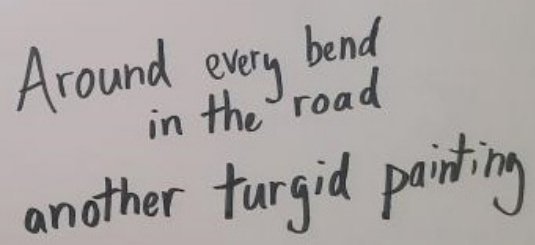 Around every bend
in the road
another turgid painting